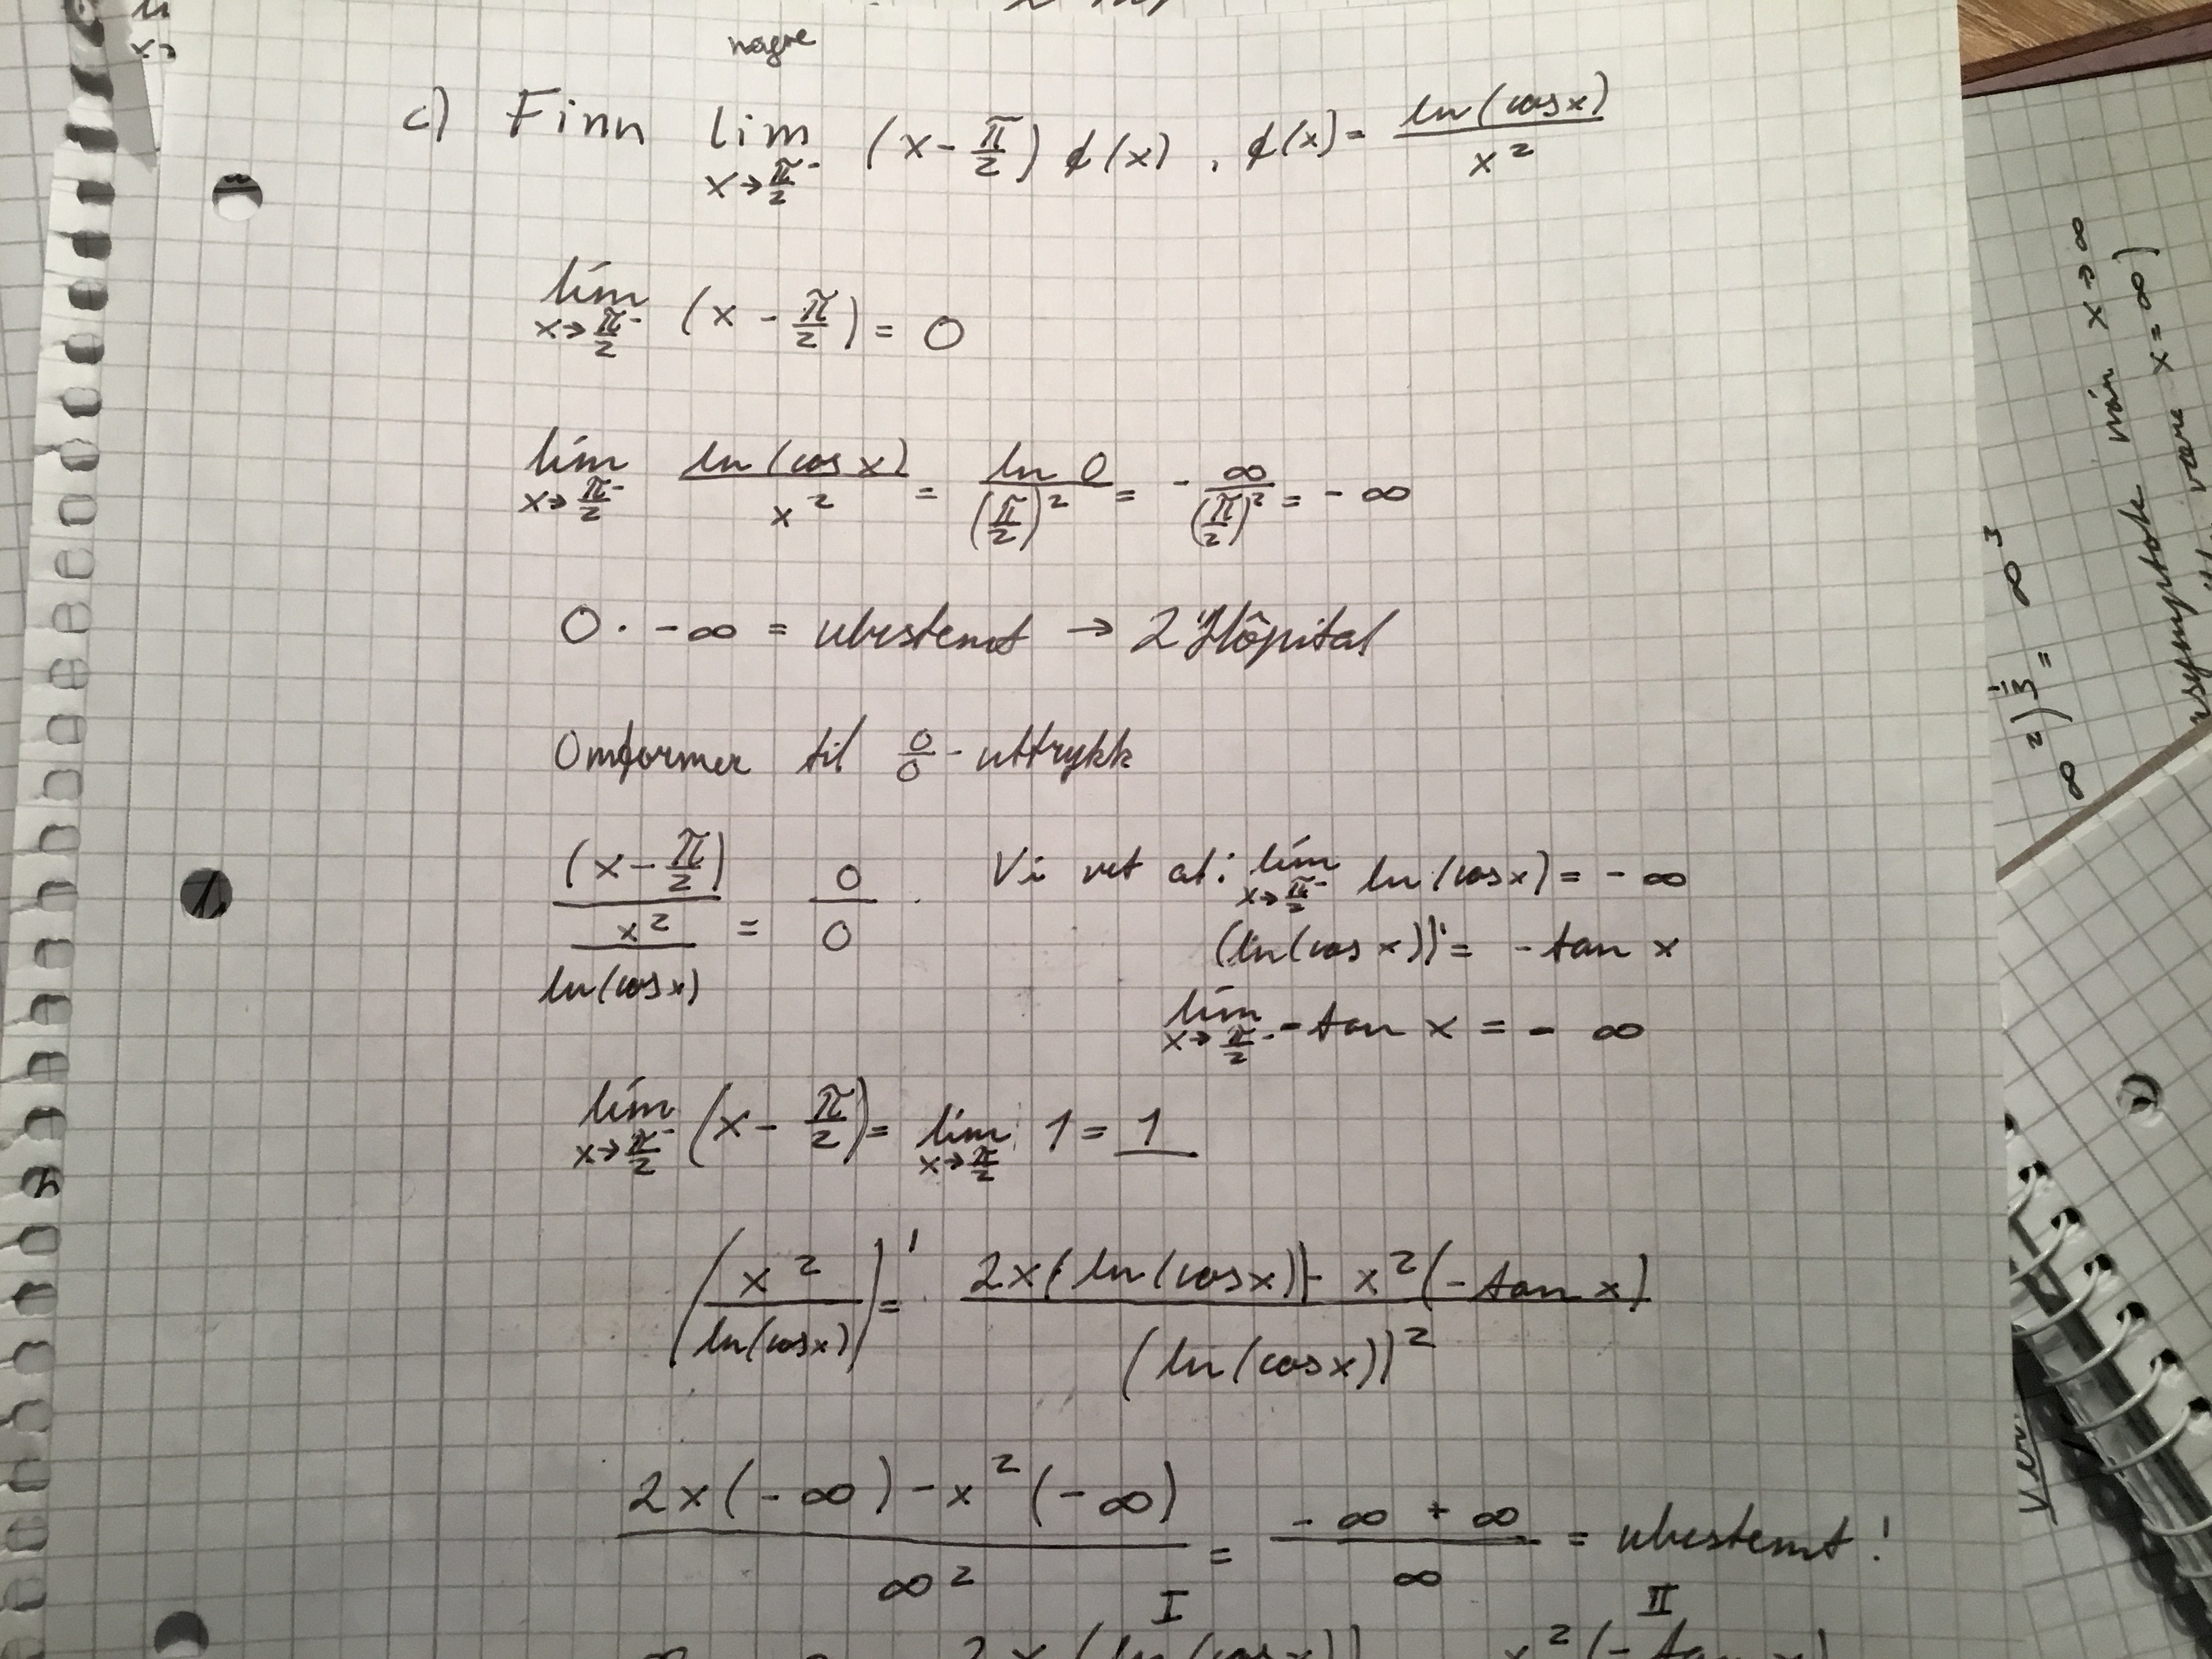 nagre
c) Finn lim x→π/2⁻ (x - π/2) f(x), f(x) = ln(cos x) / x²
lim x→π/2⁻ (x - π/2) = 0
lim x→π/2⁻ ln(cos x) / x² = ln 0 / (π/2)² = - ∞ / (π/2)² = - ∞
0 · -∞ = ubestemt → L'Hôpital
Omformer til 0/0 - uttrykk
(x - π/2) / (x² / ln(cos x)) = 0 / 0 . Vi vet at: lim x→π/2⁻ ln(cos x) = - ∞
(ln(cos x))' = - tan x
lim x→π/2⁻ - tan x = - ∞
lim x→π/2⁻ (x - π/2) = lim x→π/2 1 = 1
(x² / ln(cos x))' = (2x(ln(cos x)) - x²(- tan x)) / (ln(cos x))²
(2x(-∞) - x²(-∞)) / ∞² = (-∞ + ∞) / ∞ = ubestemt!
I II
2x (ln(cos x)) x²(- tan x)
∞²)^(1/3) = ∞³
asymptote når x→∞
være x = ∞)